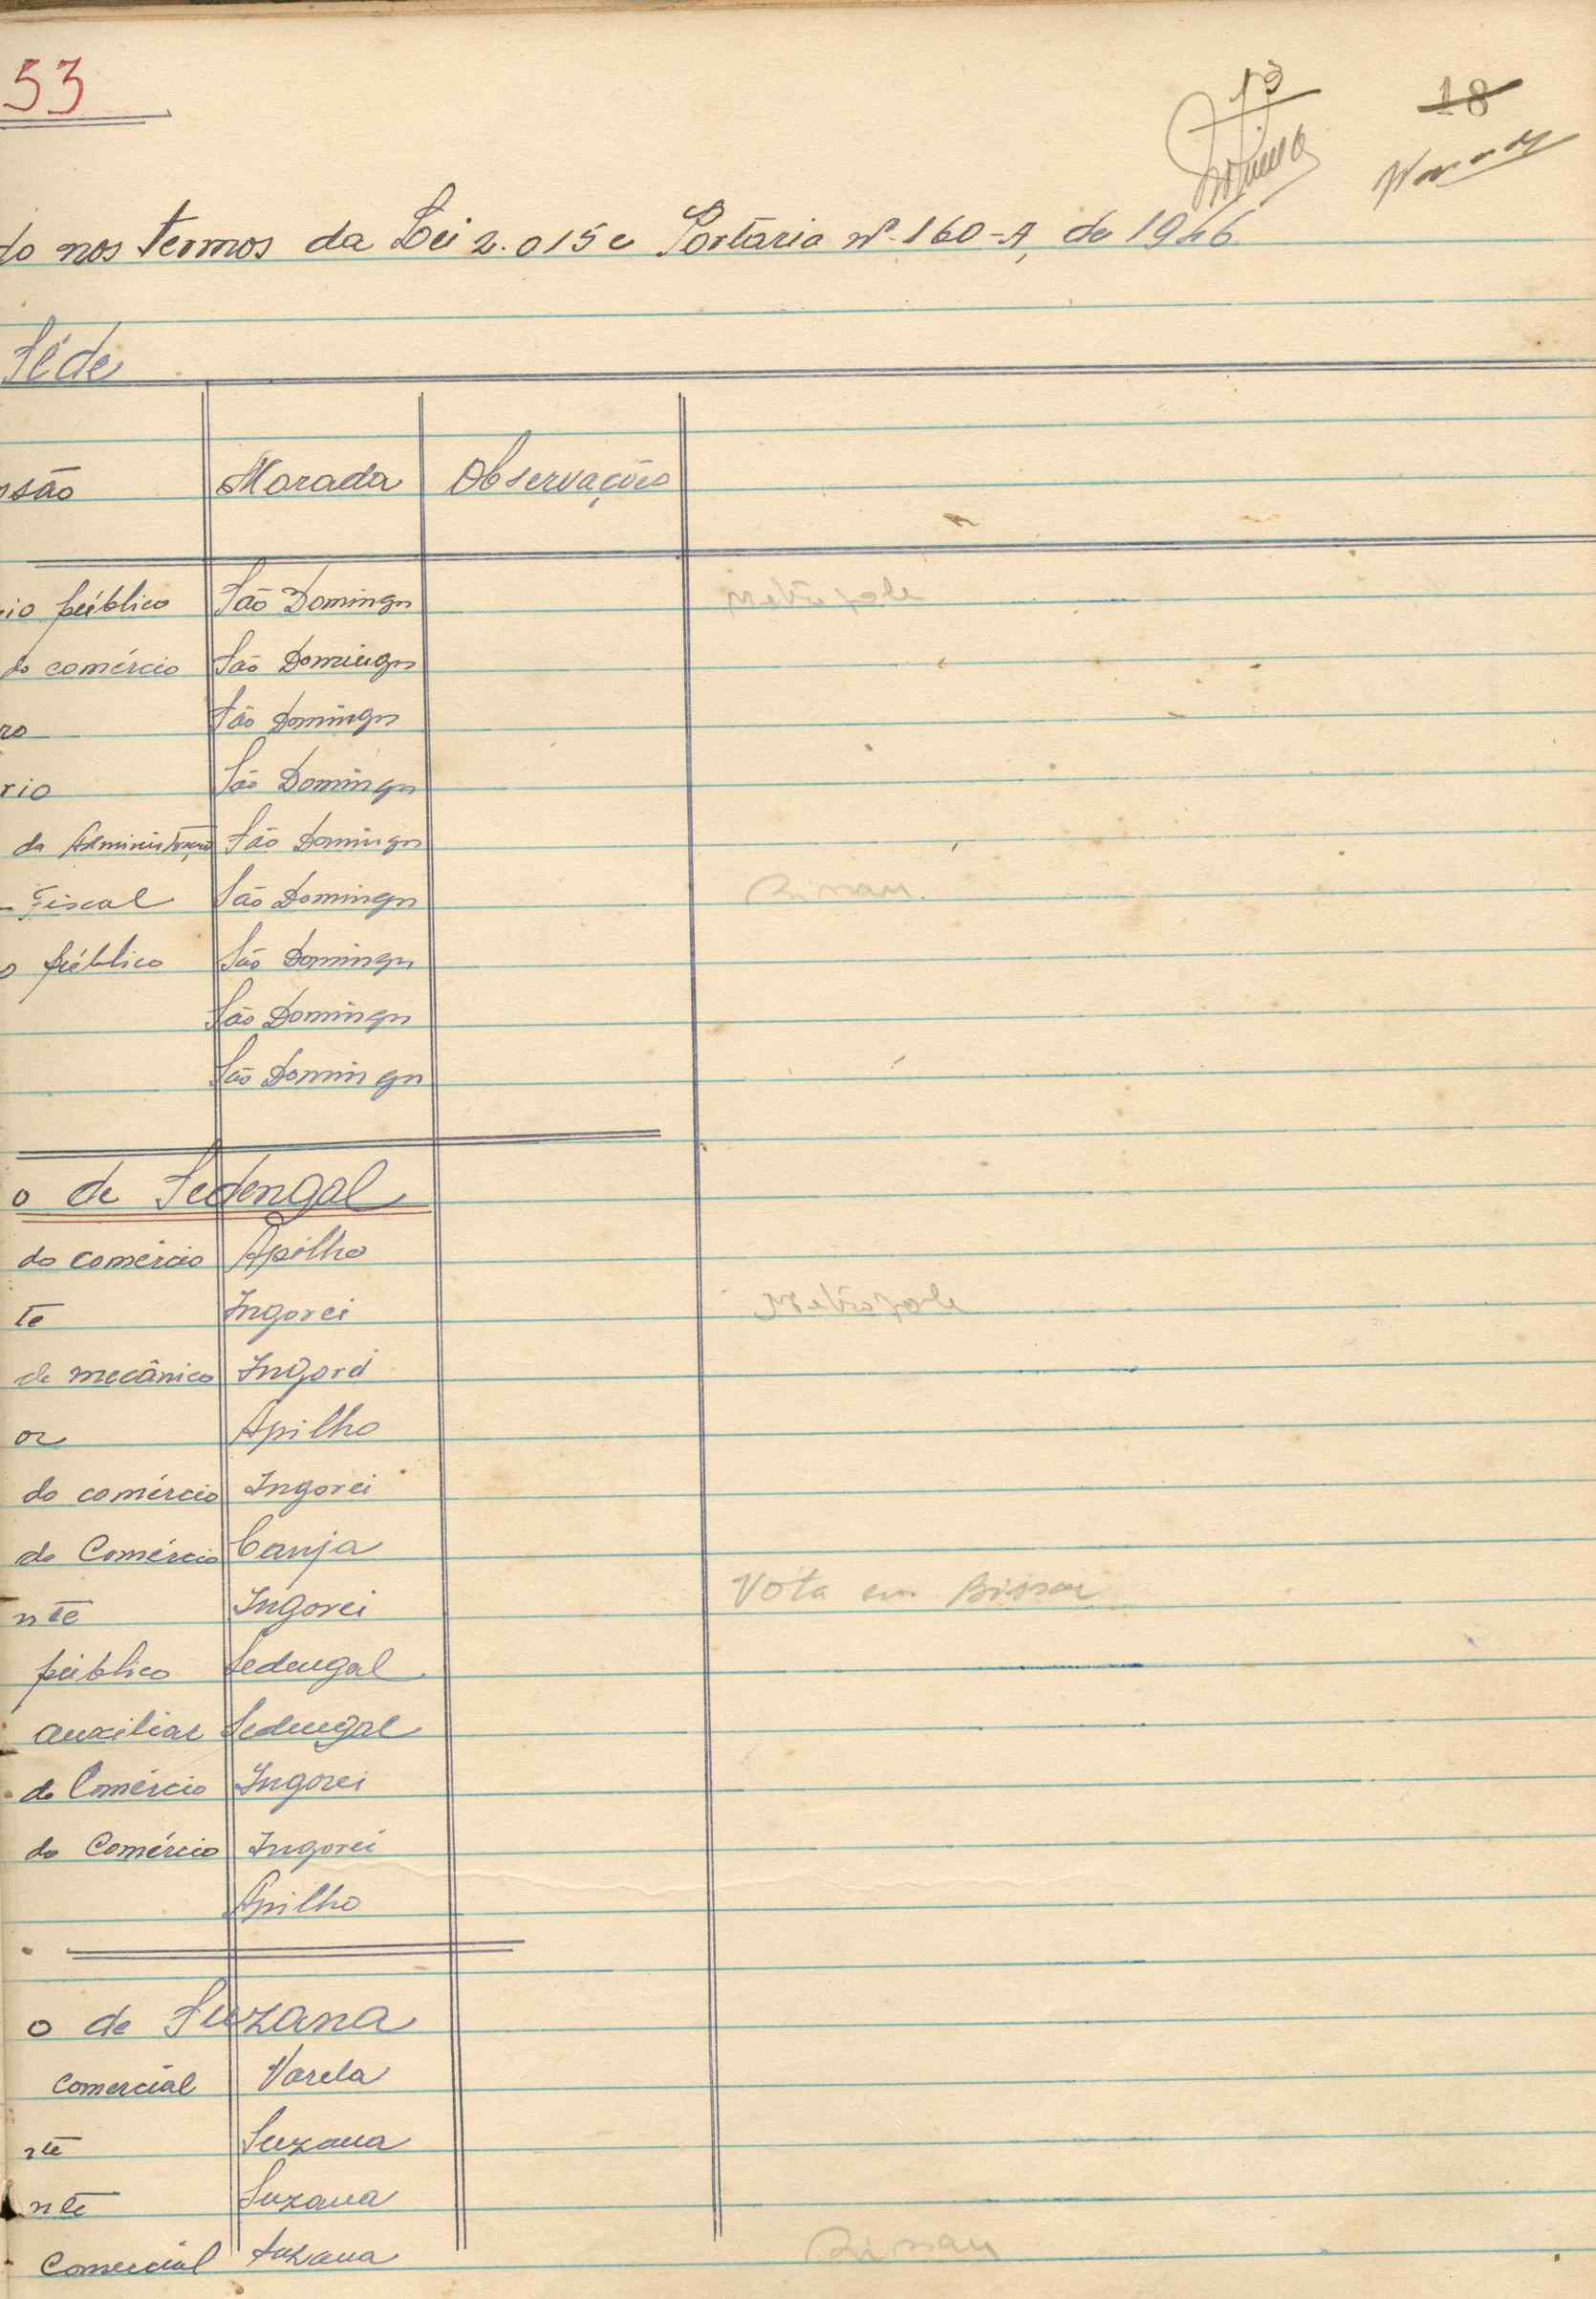 53
13
18
do nos termos da Lei 2.015 e Portaria nº 160-A, de 1946
Séde
são Morada Observações
io público São Domingos Metrópole
do comércio São Domingos
ro São Domingos
rio São Domingos
da Administração São Domingos
Fiscal São Domingos Bissau
o público São Domingos
São Domingos
São Domingos
o de Sedengal
do comércio Apilho
te Ingorei Metrópole
de mecânico Ingorei
or Apilho
do comércio Ingorei
do Comércio Canja
nte Ingorei Vota em Bissau
público Sedengal
auxiliar Sedengal
do Comércio Ingorei
do Comércio Ingorei
Apilho
o de Suzana
Comercial Varela
nte Suzana
nte Suzana
Comercial Suzana Bissau